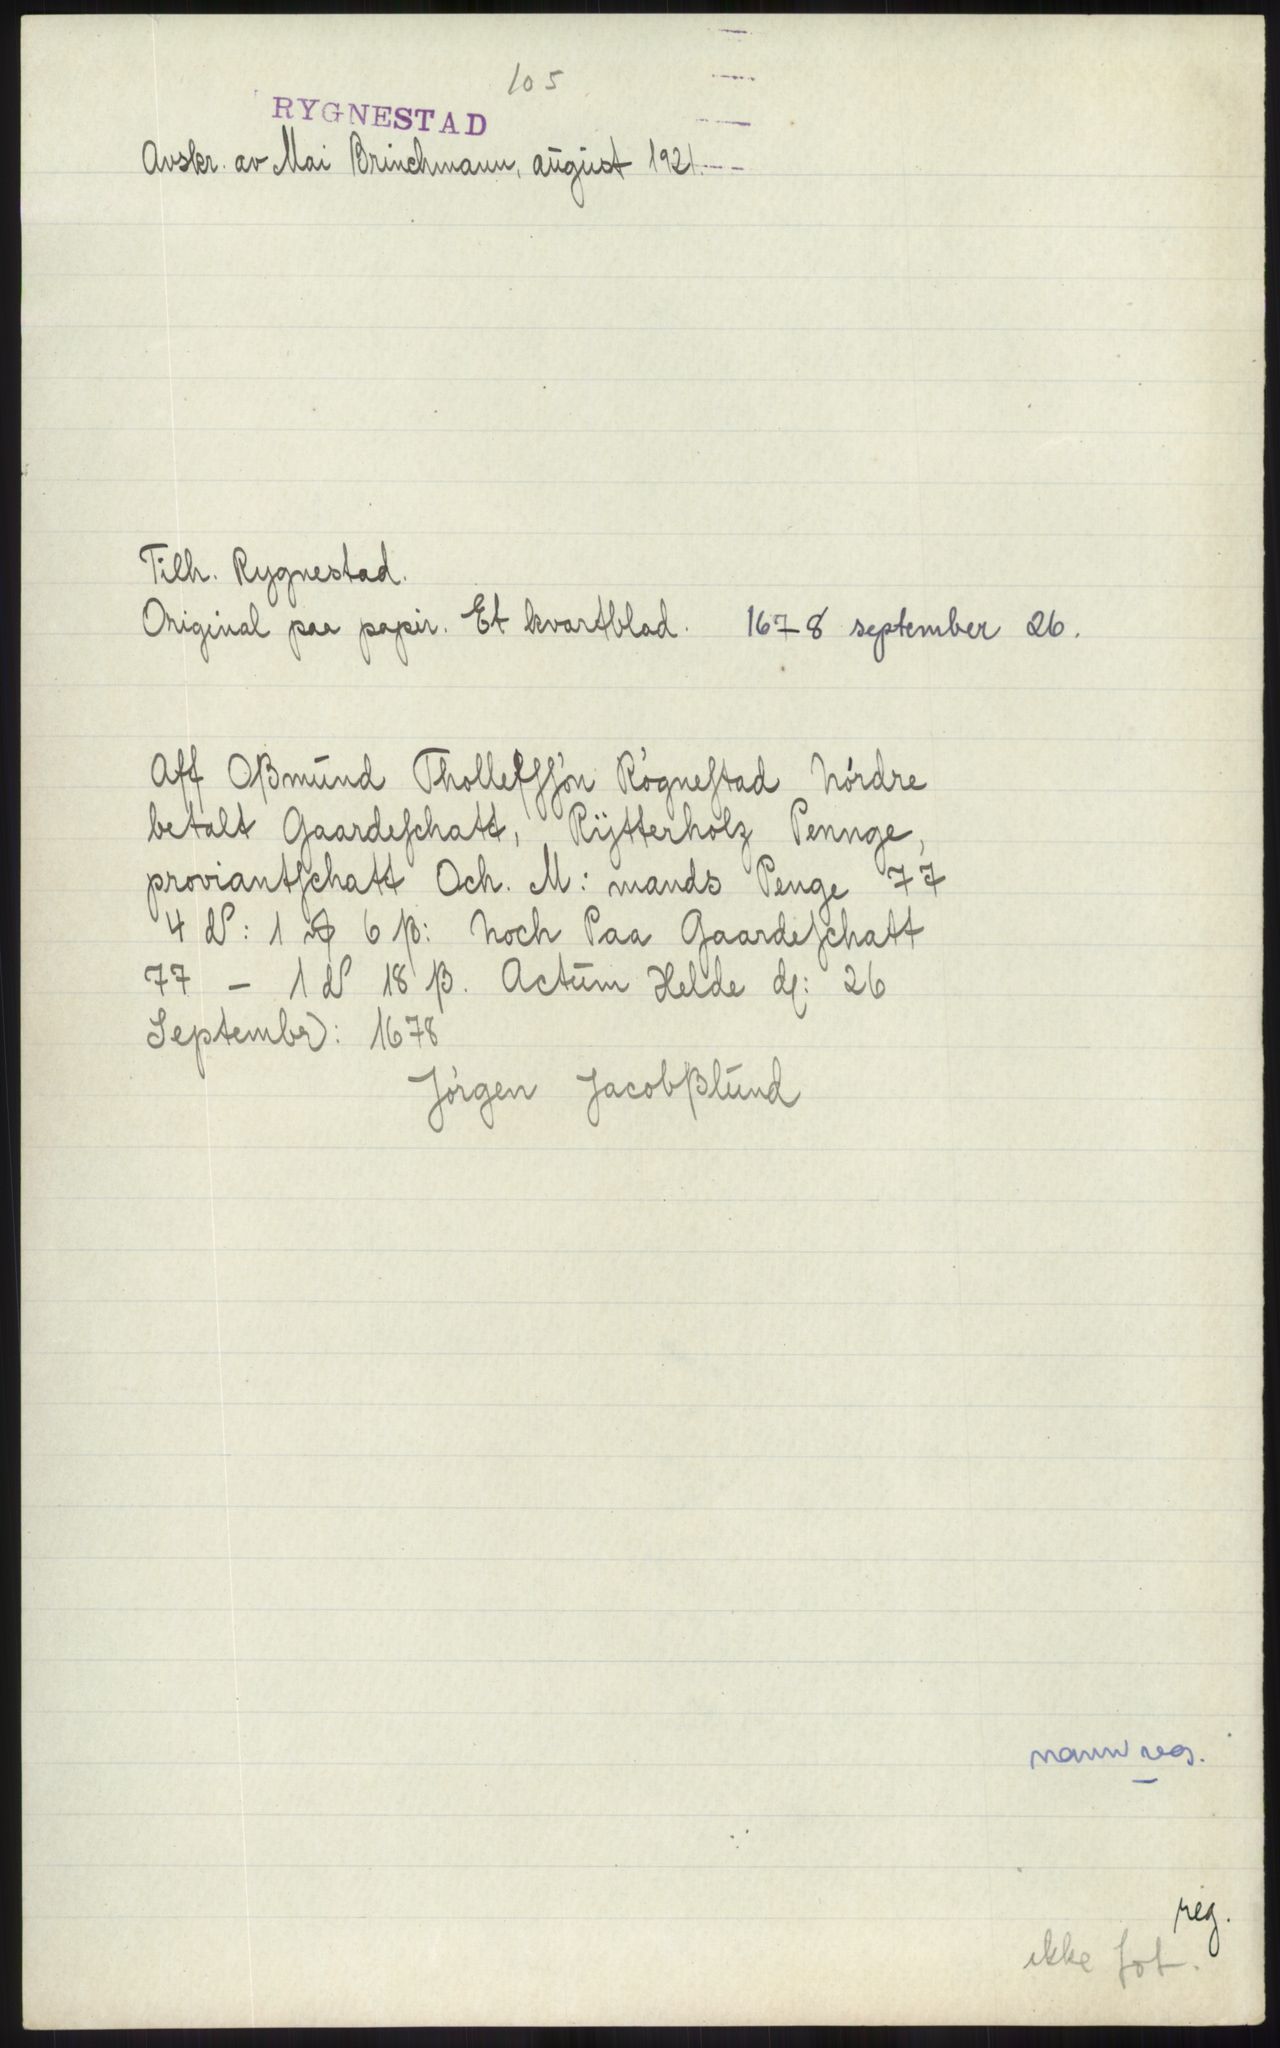 105
RYGNESTAD
Avskr. av Mai Brinchmann, august 1921.
Tilh. Rygnestad.
Original paa papir. Et kvartblad. 1678 september 26.
Aff Oßmund Thollefſſøn Røgneſtad Nørdre
betalt Gaardeſchatt, Rÿtterholz Pennge,
proviantſchatt Och. M: mands Penge 77
4 d: 1 6 ß: Noch Paa Gaardeſchatt
77 - 1 d 18 ß. Actum Helde d: 26
Septembr: 1678
Jørgen Jacobßlund
navnreg.
reg.
ikke fot.